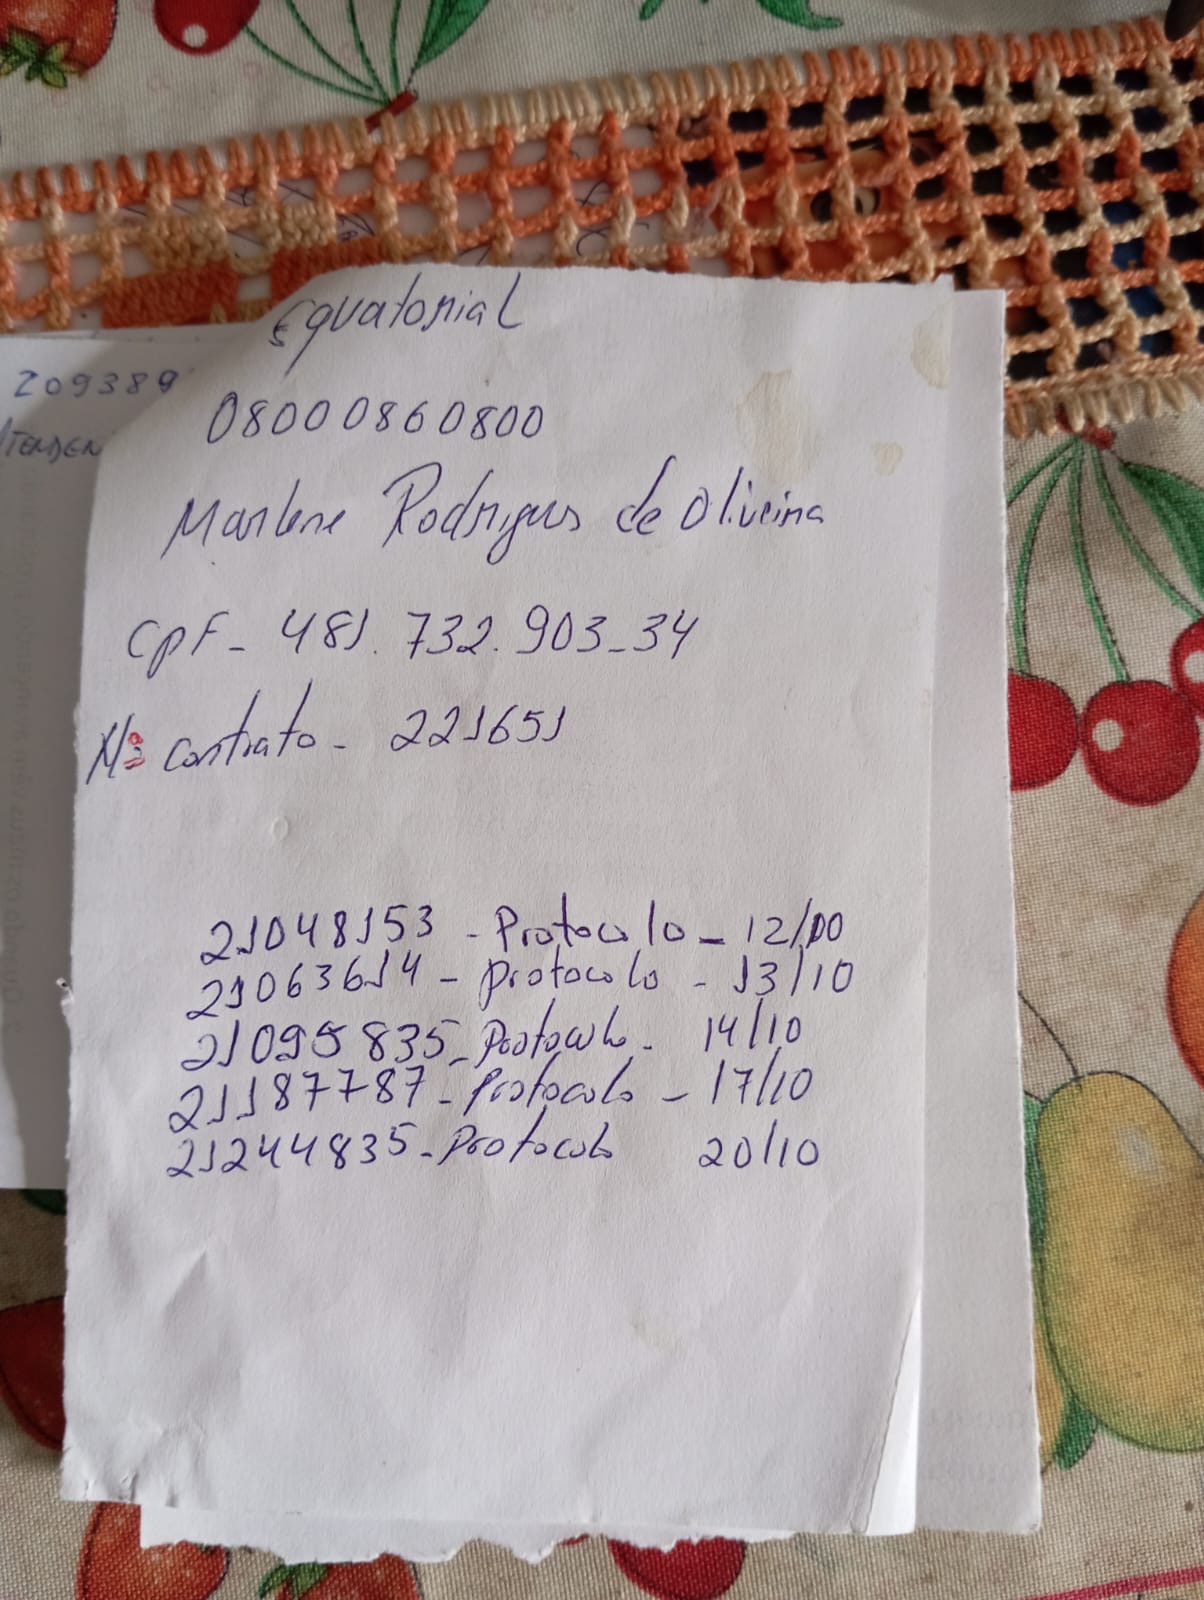 Equatorial
08000860800
Marlene Rodrigues de Oliveira
CPF - 481.732.903-34
Nº contrato - 221651
21048153 - Protocolo - 12/10
21063614 - Protocolo - 13/10
21095835 - Protocolo - 14/10
21187787 - Protocolo - 17/10
21244835 - Protocolo 20/10
209389
ATENDEN